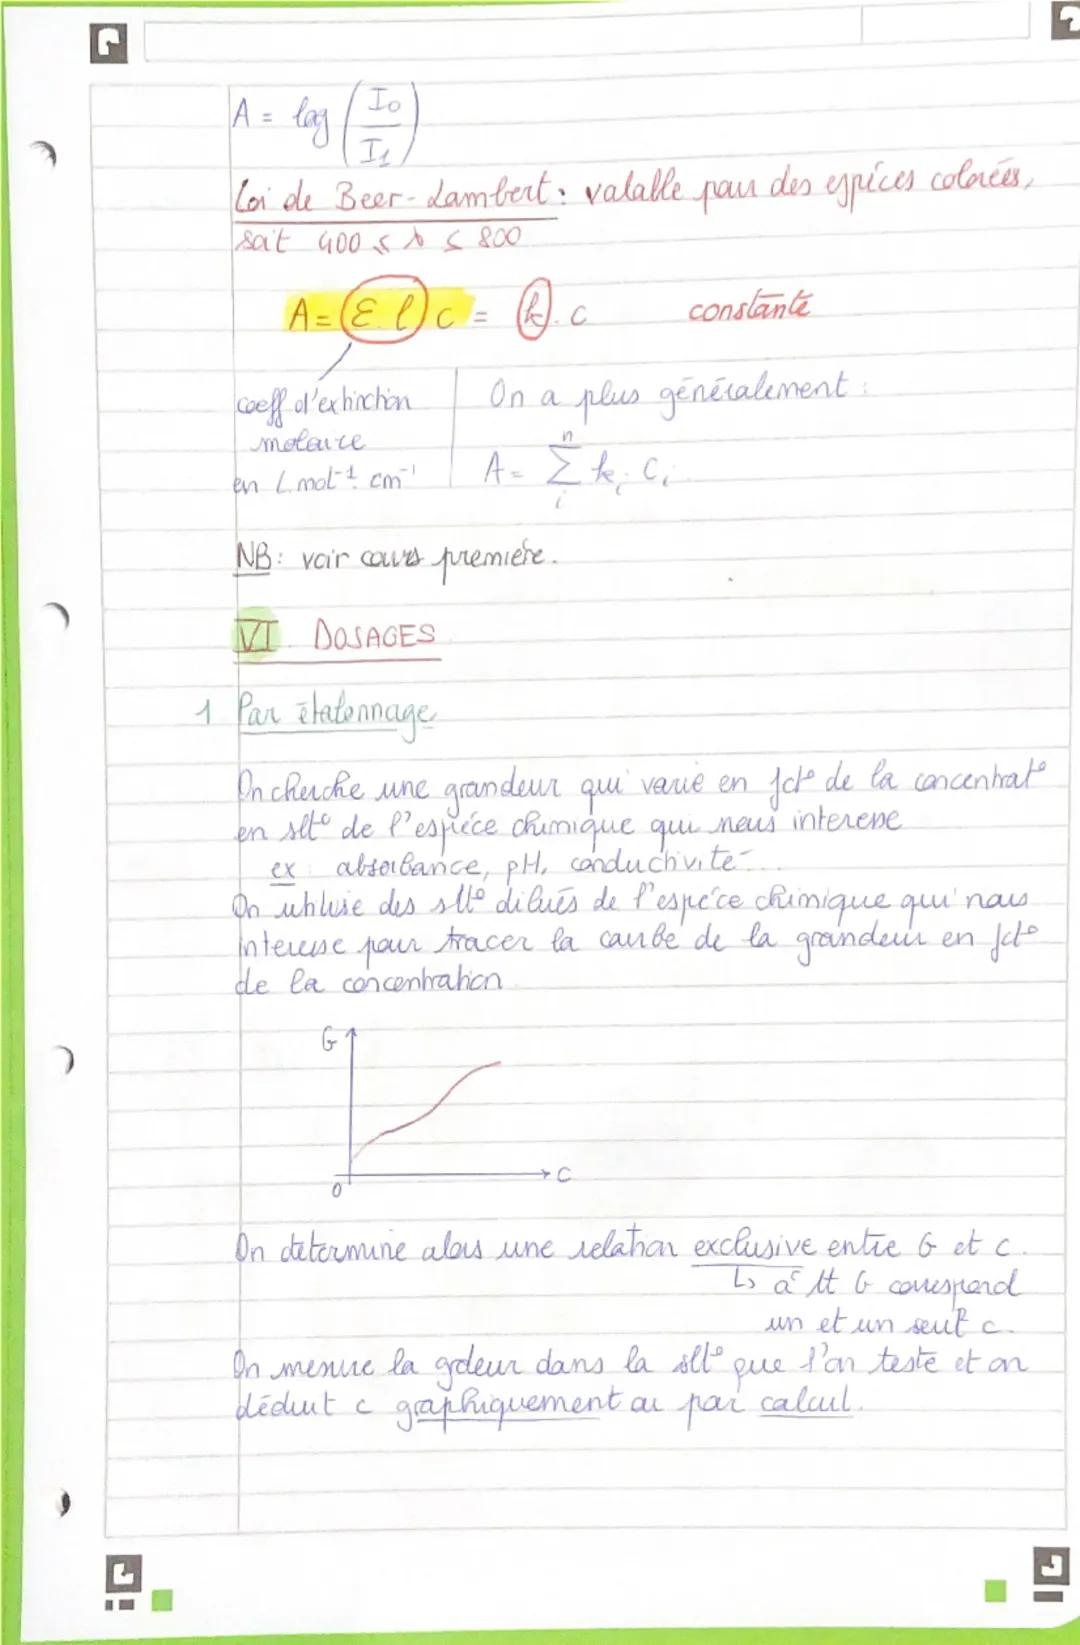 A = log (I₀/I₁)
Loi de Beer-Lambert : valable pour des espèces colorées,
soit 400 ≤ λ ≤ 800
A = ε.l c = k . c constante
coeff d'extinction
molaire
en L.mol⁻¹.cm⁻¹
On a plus généralement :
A = Σ kᵢ . Cᵢ
n
i
NB : voir cours première.
VI. DOSAGES
1 Par étalonnage
On cherche une grandeur qui varie en fct° de la concentrat°
en slt° de l'espèce chimique qui nous interesse
ex : absorbance, pH, conductivité...
On utilise des slt° dilués de l'espèce chimique qui nous
interesse pour tracer la courbe de la grandeur en fct°
de la concentration
G
0
C
On détermine alors une relation exclusive entre G et c.
↳ à tt G correspond
un et un seul c.
On mesure la grdeur dans la slt° que l'on teste et on
déduit c graphiquement ou par calcul.